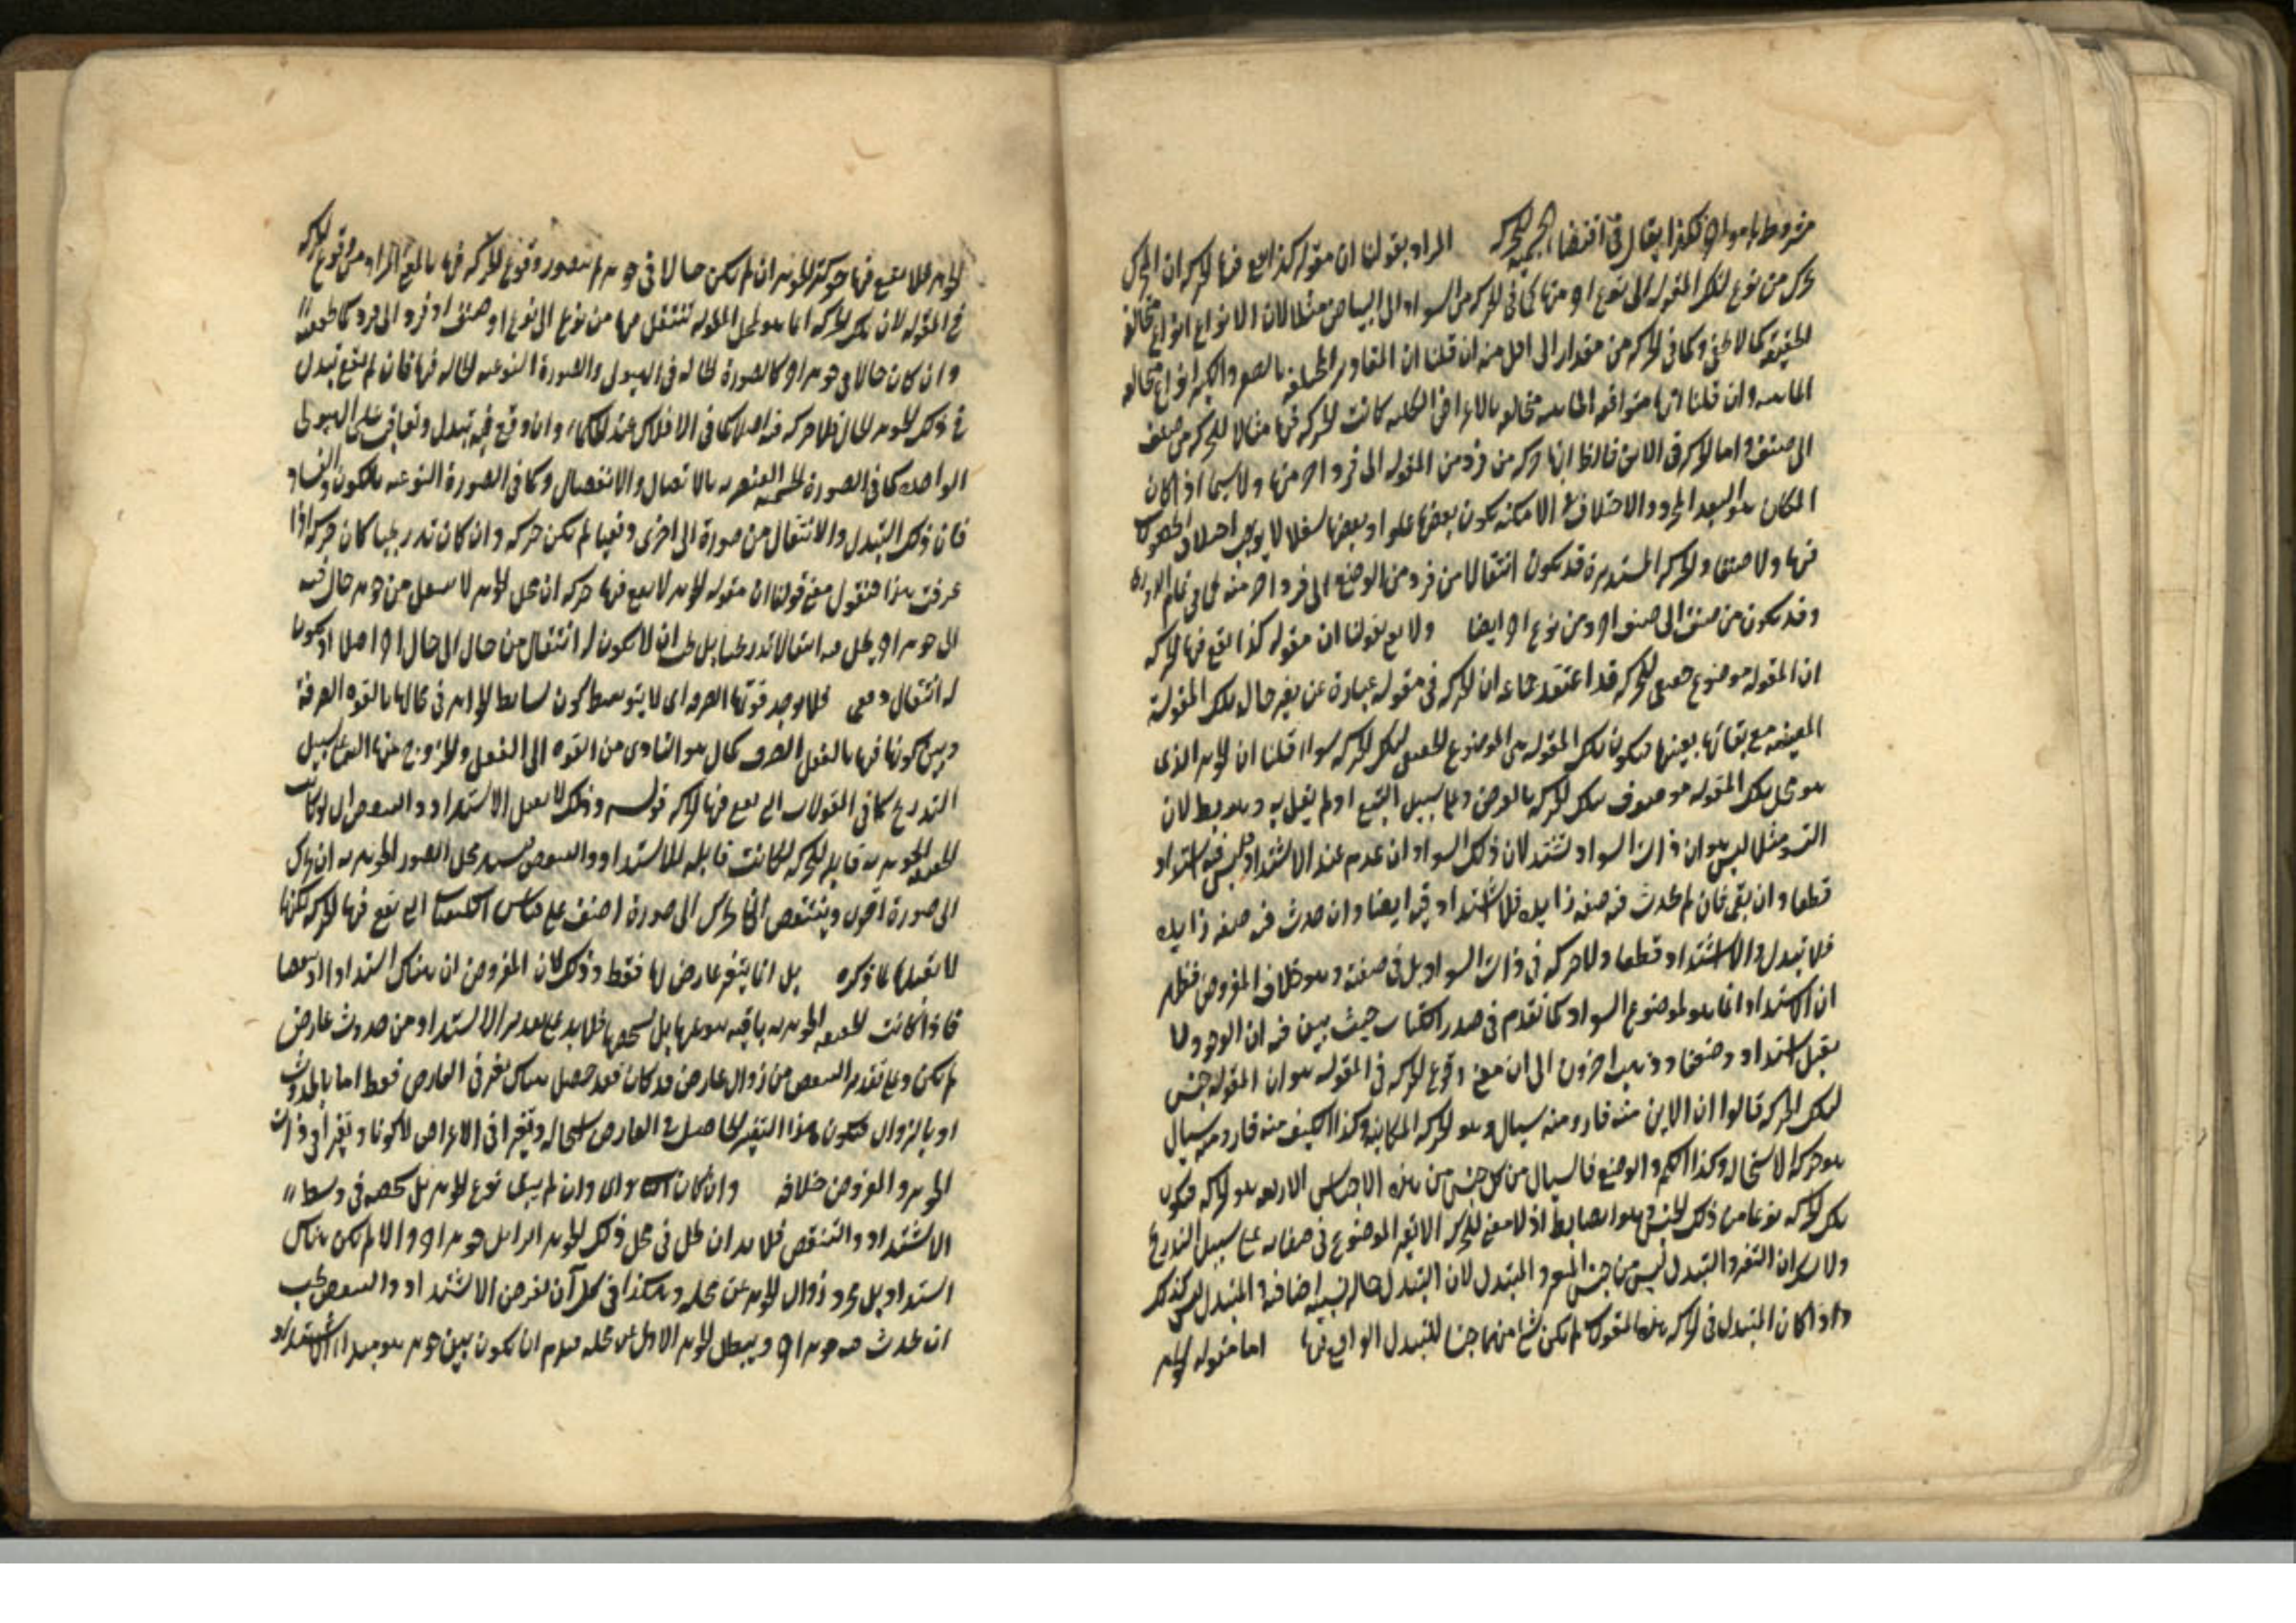 مشروط بامور اخر فكذا يقال في اقتضاء الجسمية للحركة المراد بقولنا ان مقولة كذا تقع فيها الحركة ان المحل
يتحرك من نوع لتلك المقولة الى نوع اخر منها كما في الحركة من السواد الى البياض مثلا لان الانواع انواع متخالفة
الحقيقة كما لا يخفى وكما في الحركة من مقدار الى اقل منه ان قلنا ان المقادير المختلفة بالصغر والكبر انواع متخالفة
الماهية وان قلنا انها متوافقة الماهية متخالفة بالاعراض الكلية كانت الحركة فيها مثالا للحركة من صنف
الى صنف واما الحركة في الاين فالظ انها حركة من فرد من المقولة الى فرد اخر منها ولا سيما اذا كان
المكان هو البعد المجرد والاختلاف في الامكنة بكون بعضها علوا وبعضها سفلا لا يوجب اختلاف
فيها ولا صنفا والحركة المستديرة قد تكون انتقالا من فرد من الوضع الى فرد اخر منه كما في تمام الدورة
وقد تكون من صنف الى صنف اخر ومن نوع اخر ايضا ولا يعنى بقولنا ان مقولة كذا تقع فيها الحركة
ان المقولة موضوع حقيقي للحركة قد اعتقد جماعة ان الحركة في مقولة عبارة عن تغير حال تلك المقولة
المعينة مع بقائها بعينها فتكون تلك المقولة هي الموضوع الحقيقي لتلك الحركة سواء قلنا ان الجوهر الذي
هو محل تلك المقولة موصوف بتلك الحركة بالعرض وعلى سبيل التبع او لم يقل به وهو بط لان
التسود مثلا ليس هو ان ذات السواد تشتد لان ذلك السواد ان عدم عند الاشتداد فليس فيه اشتداد
قطعا وان بقي فان لم تحدث فيه صفة زايدة فلا اشتداد فيه ايضا وان حدث فيه صفة زايدة
فلا تبدل ولا اشتداد قطعا ولا حركة في ذات السواد بل في صفته وهو خلاف المفروض فظهر
ان الاشتداد انما هو لموضوع السواد كما تقدم في صدر الكتاب حيث بين فيه ان الوجود لا
يقبل اشتدادا وضعفا وذهب اخرون الى ان معنى وقوع الحركة في المقولة هو ان المقولة جنس
لتلك الحركة قالوا ان الاين منه قار ومنه سيال وهو الحركة المكانية وكذا الكيف منه قار ومنه سيال
هو حركة الاستحالة وكذا الكم والوضع فالسيال من كل جنس من هذه الاجناس الاربعة هو الحركة فتكون
تلك الحركة نوعا من ذلك الجنس وهو ايضا بط اذ لا معنى للحركة الا تغير الموضوع في صفاته على سبيل التدريج
ولا شك ان التغير والتبدل ليس من جنس المتغير والمتبدل لان التبدل حالة نسبية اضافية والمتبدل ليس كذلك
واذا كان المتبدل في الحركة هذه المقولات لم يكن شيء منها جنسا للتبدل الواقع فيها اما مقولة الجوهر
الجوهر فلا تقع فيها حركة الجوهر ان لم يكن حالا في جوهر لم يتصور وقوع الحركة فيها بالمعنى المراد من وقوع الحركة
في المقولة لان تلك الحركة انما هو لمحل المقولة تنتقل منها من نوع الى نوع او صنف او فرد الى فرد كما تحققت
وان كان حالا في جوهر اخر كالصورة الحالة في الهيولى والصورة النوعية الحالة فيها فان لم يقع تبدل
في ذلك الجوهر الحال فلا حركة فيه اصلا كما في الافلاك عند الحكماء وان وقع فيه تبدل وتعاقب على الهيولى
الواحدة كما في الصورة الجسمية العنصرية بالاتصال والانفصال وكما في الصورة النوعية بالكون والفساد
فان ذلك التبدل والانتقال من صورة الى اخرى دفعيا لم تكن حركة وان كان تدريجيا كان حركة اذا
عرفت هذا فنقول معنى قولنا ان مقولة الجوهر لا تقع فيها حركة ان محل الجوهر لا ينتقل من جوهر حال فيه
الى جوهر اخر يحل فيه انتقالا تدريجيا بل يجب ان لا يكون له انتقال من حال الى حال اخر اصلا او يكون
له انتقال دفعي فلا يوجد قوتها الصرفة اي لا يتوسط كون بسايط الجواهر في محالها بالقوة الصرفة
وبين كونها فيها بالفعل الصرف كمال هو التادي من القوة الى الفعل والخروج منها اليه على سبيل
التدريج كما في المقولات التي تقع فيها الحركة قوله وذلك لا يقبل الاشتداد والتنقص اي لو كانت
الحقيقة الجوهرية قابلة للحركة لكانت قابلة للاشتداد والتنقص محل الصور الجوهرية ان تحرك
الى صورة اقوى وينتقص ان تحرك الى صورة اضعف على قياس الكيفيات التي تقع فيها الحركة لكنها
لا تقبلها لما ذكره بل انما يتغير عارض لها فقط وذلك لان المفروض ان هناك اشتدادا او تنقصا
فاذا كانت الحقيقة الجوهرية باقية بنوعها بل بشخصها فلا بد على تقدير الاشتداد من حدوث عارض
لم يكن وعلى تقدير التنقص من زوال عارض قد كان فقد حصل هناك تغير في العارض فقط اما بالحدوث
او بالزوال فيكون هذا التغير الحاصل في العارض استحالة وتغيرا في الاعراض لا كونا وتغيرا في ذات
الجوهر والمفروض خلافه وان كان اي وان لم يبق نوع الجوهر بل شخصه في وسط
الاشتداد والتنقص فلا بد ان يحل في محل ذلك الجوهر الزايل جوهر اخر والا لم يكن هناك
اشتداد بل مجرد زوال الجوهر عن محله وهكذا في كل آن يفرض الاشتداد والتنقص يجب
ان يحدث فيه جوهر اخر ويبطل الجوهر الاول عن محله فيلزم ان يكون بين جوهر هو مبدا الاشتداد